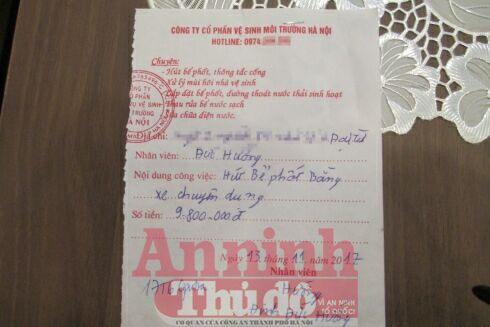 CÔNG TY CỔ PHẦN VỆ SINH MÔI TRƯỜNG HÀ NỘI
HOTLINE: 0974
Chuyên:
- Hút bể phốt, thông tắc cống
- Xử lý mùi hôi nhà vệ sinh
- Lắp đặt bể phốt, đường thoát nước thải sinh hoạt
- Thau rửa bể nước sạch
- Sửa chữa điện nước.
CÔNG TY
CỔ PHẦN
VỆ SINH
TRƯỜNG
HÀ NỘI
Địa chỉ:
Nhân viên: Đức Hướng
Nội dung công việc: Hút Bể phốt Bằng
xe chuyên dung
Số tiền: 9.800.000đ
Ngày 13 tháng 11 năm 2017
Nhân viên
An ninh
Thủ đô
VÌ AN NINH
TỔ QUỐC!
CƠ QUAN CỦA CÔNG AN THÀNH PHỐ HÀ NỘI
Hướng
Đinh Đức Hướng